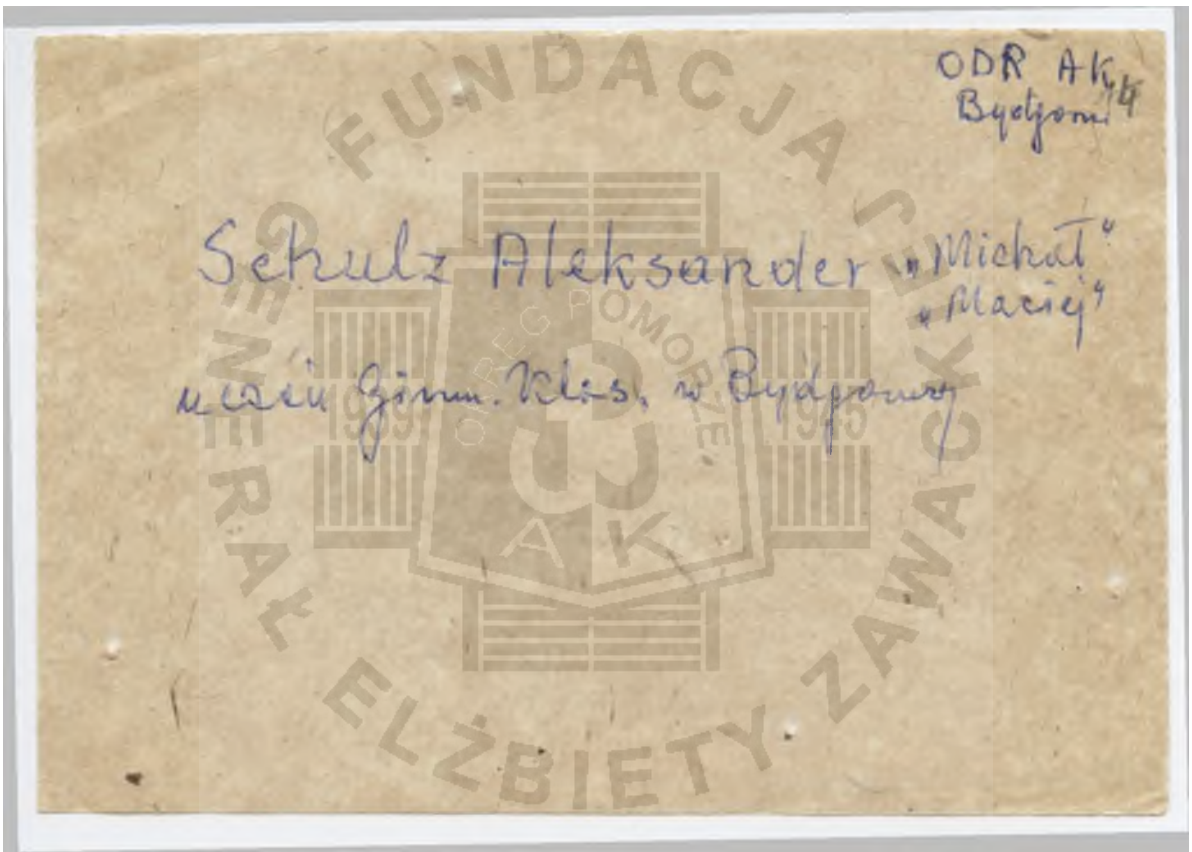 ODR AK
Bydgoszcz
Schulz Aleksander „Michał"
„Maciej"
uczeń Gimn. Klas. w Bydgoszczy
FUNDACJA GENERAŁ ELŻBIETY ZAWACKIEJ
OKRĘG POMORZE
1939 1945
AK